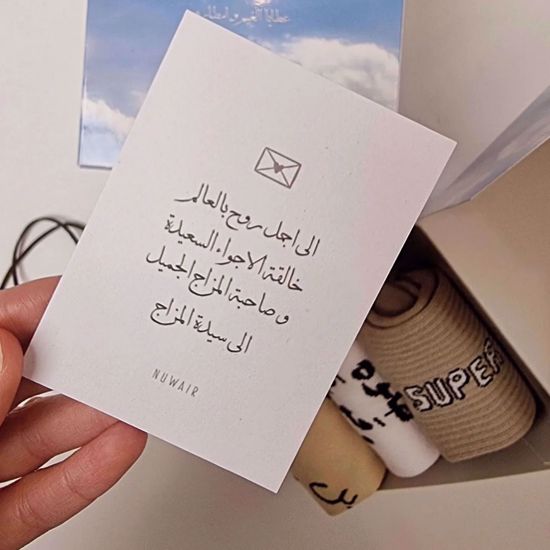 الى اجمل روح بالعالم
خالقة الاجواء السعيدة
و صاحبة المزاج الجميل
الى سيدة المزاج
NUWAIR
SUPER
قهوة